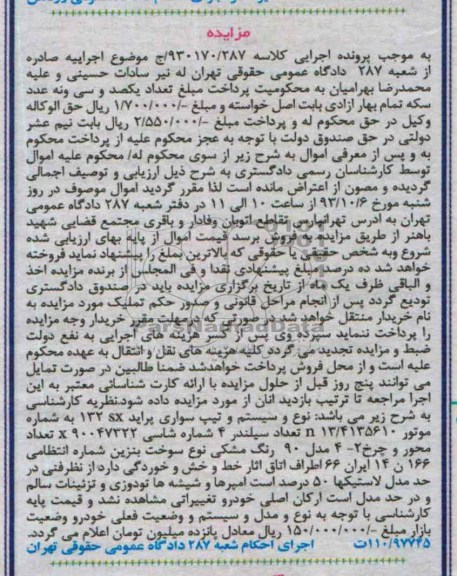 مزایده
به موجب پرونده اجرایی کلاسه ۹۳۰۱۷۰/۲۸۷/ج موضوع اجراییه صادره
از شعبه ۲۸۷ دادگاه عمومی حقوقی تهران له نیر سادات حسینی و علیه
محمدرضا بهرامیان به محکومیت پرداخت مبلغ تعداد یکصد و سی ونه عدد
سکه تمام بهار ازادی بابت اصل خواسته و مبلغ -/۱/۷۰۰/۰۰۰ ریال حق الوکاله
وکیل در حق محکوم له و پرداخت مبلغ -/۲/۵۵۰/۰۰۰ ریال بابت نیم عشر
دولتی در حق صندوق دولت با توجه به عجز محکوم علیه از پرداخت محکوم
به و پس از معرفی اموال به شرح زیر از سوی محکوم له/ محکوم علیه اموال
توسط کارشناسان رسمی دادگستری به شرح ذیل ارزیابی و توصیف اجمالی
گردیده و مصون از اعتراض مانده است لذا مقرر گردید اموال موصوف در روز
شنبه مورخ ۹۳/۱۰/۶ از ساعت ۱۰ الی ۱۱ در دفتر شعبه ۲۸۷ دادگاه عمومی
تهران به ادرس تهرانپارس تقاطع اتوبان وفادار و باقری مجتمع قضایی شهید
باهنر از طریق مزایده به فروش برسد قیمت اموال از پایه بهای ارزیابی شده
شروع وبه شخص حقیقی یا حقوقی که بالاترین مبلغ را پیشنهاد نماید فروخته
خواهد شد ده درصد مبلغ پیشنهادی نقدا و فی المجلس از برنده مزایده اخذ
و الباقی ظرف یک ماه از تاریخ برگزاری مزایده باید در صندوق دادگستری
تودیع گردد پس از انجام مراحل قانونی و صدور حکم تملیک مورد مزایده به
نام خریدار منتقل خواهد شد در صورتی که در مهلت مقرر خریدار وجه مزایده
را پرداخت ننماید سپرده وی پس از کسر هزینه های اجرایی به نفع دولت
ضبط و مزایده تجدید می گردد کلیه هزینه های نقل و انتقال به عهده محکوم
علیه است و از محل فروش پرداخت خواهدشد ضمنا طالبین در صورت تمایل
می توانند پنج روز قبل از حلول مزایده با ارائه کارت شناسائی معتبر به این
اجرا مراجعه تا ترتیب بازدید انان از مورد مزایده داده شود.نظریه کارشناسی
به شرح زیر می باشد: نوع و سیستم و تیپ سواری پراید ۱۳۲ sx به شماره
موتور ۱۳/۴۱۳۵۶۱۰ n تعداد سیلندر ۴ شماره شاسی ۹۰۰۴۷۳۲۲ x تعداد
محور و چرخ۲- ۴ مدل ۹۰ رنگ مشکی نوع سوخت بنزین شماره انتظامی
۱۶۶ ن ۱۴ ایران ۶۶ اطراف اتاق اثار خط و خش و خوردگی دارد؛از نظرفنی در
حد مدل لاستیکها ۵۰ درصد است امپرها و شیشه ها تودوزی و تزئینات سالم
و در حد مدل است ارکان اصلی خودرو تغییراتی مشاهده نشد و قیمت پایه
کارشناسی با توجه به نوع و مدل و سیستم و وضعیت فعلی خودرو وضعیت
بازار مبلغ -/۱۵۰/۰۰۰/۰۰۰ ریال معادل پانزده میلیون تومان اعلام می گردد.
۱۱۰/۹۷۷۴۵ت اجرای احکام شعبه ۲۸۷ دادگاه عمومی حقوقی تهران